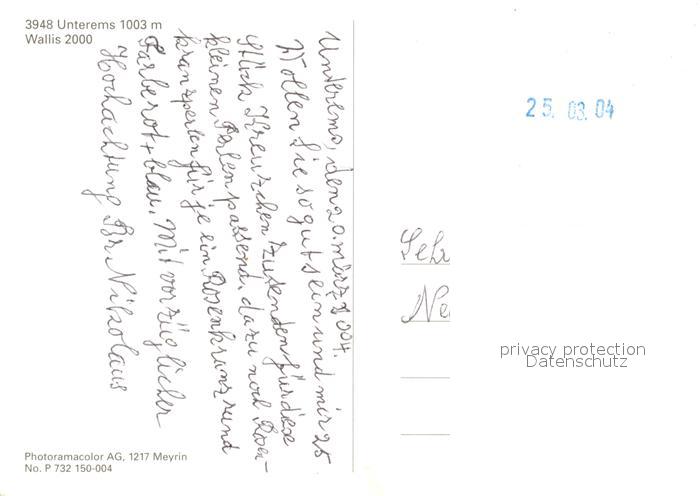 3948 Unterems 1003 m
Wallis 2000
Unterems, den 20. März 2004.
Wollen Sie so gut sein und mir 25
Stück Kreuzchen zusenden für diese
kleinen Perlen passend, dazu noch Rosen-
kranzperlen für je ein Rosenkranz rund
Farbe rot + blau. Mit vorzüglicher
Hochachtung Br Nikolaus
Photoramacolor AG, 1217 Meyrin
No. P 732 150-004
25. 03. 04
Sehr
Ne
privacy protection
Datenschutz